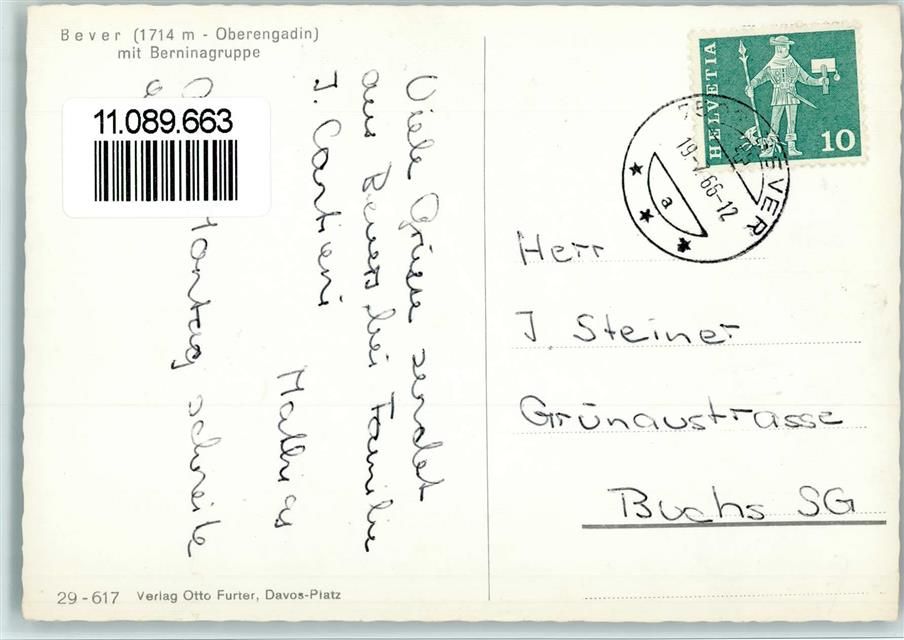 Bever (1714 m - Oberengadin)
mit Berninagruppe
11.089.663
HELVETIA
10
BEVER
19-7.66-12
a
Viele Grüsse sendet
aus Bever bei Familie
J. Cortieni
Mathias
Montag schreibe
Herr
J Steiner
Grünaustrasse
Buchs SG
29-617 Verlag Otto Furter, Davos-Platz